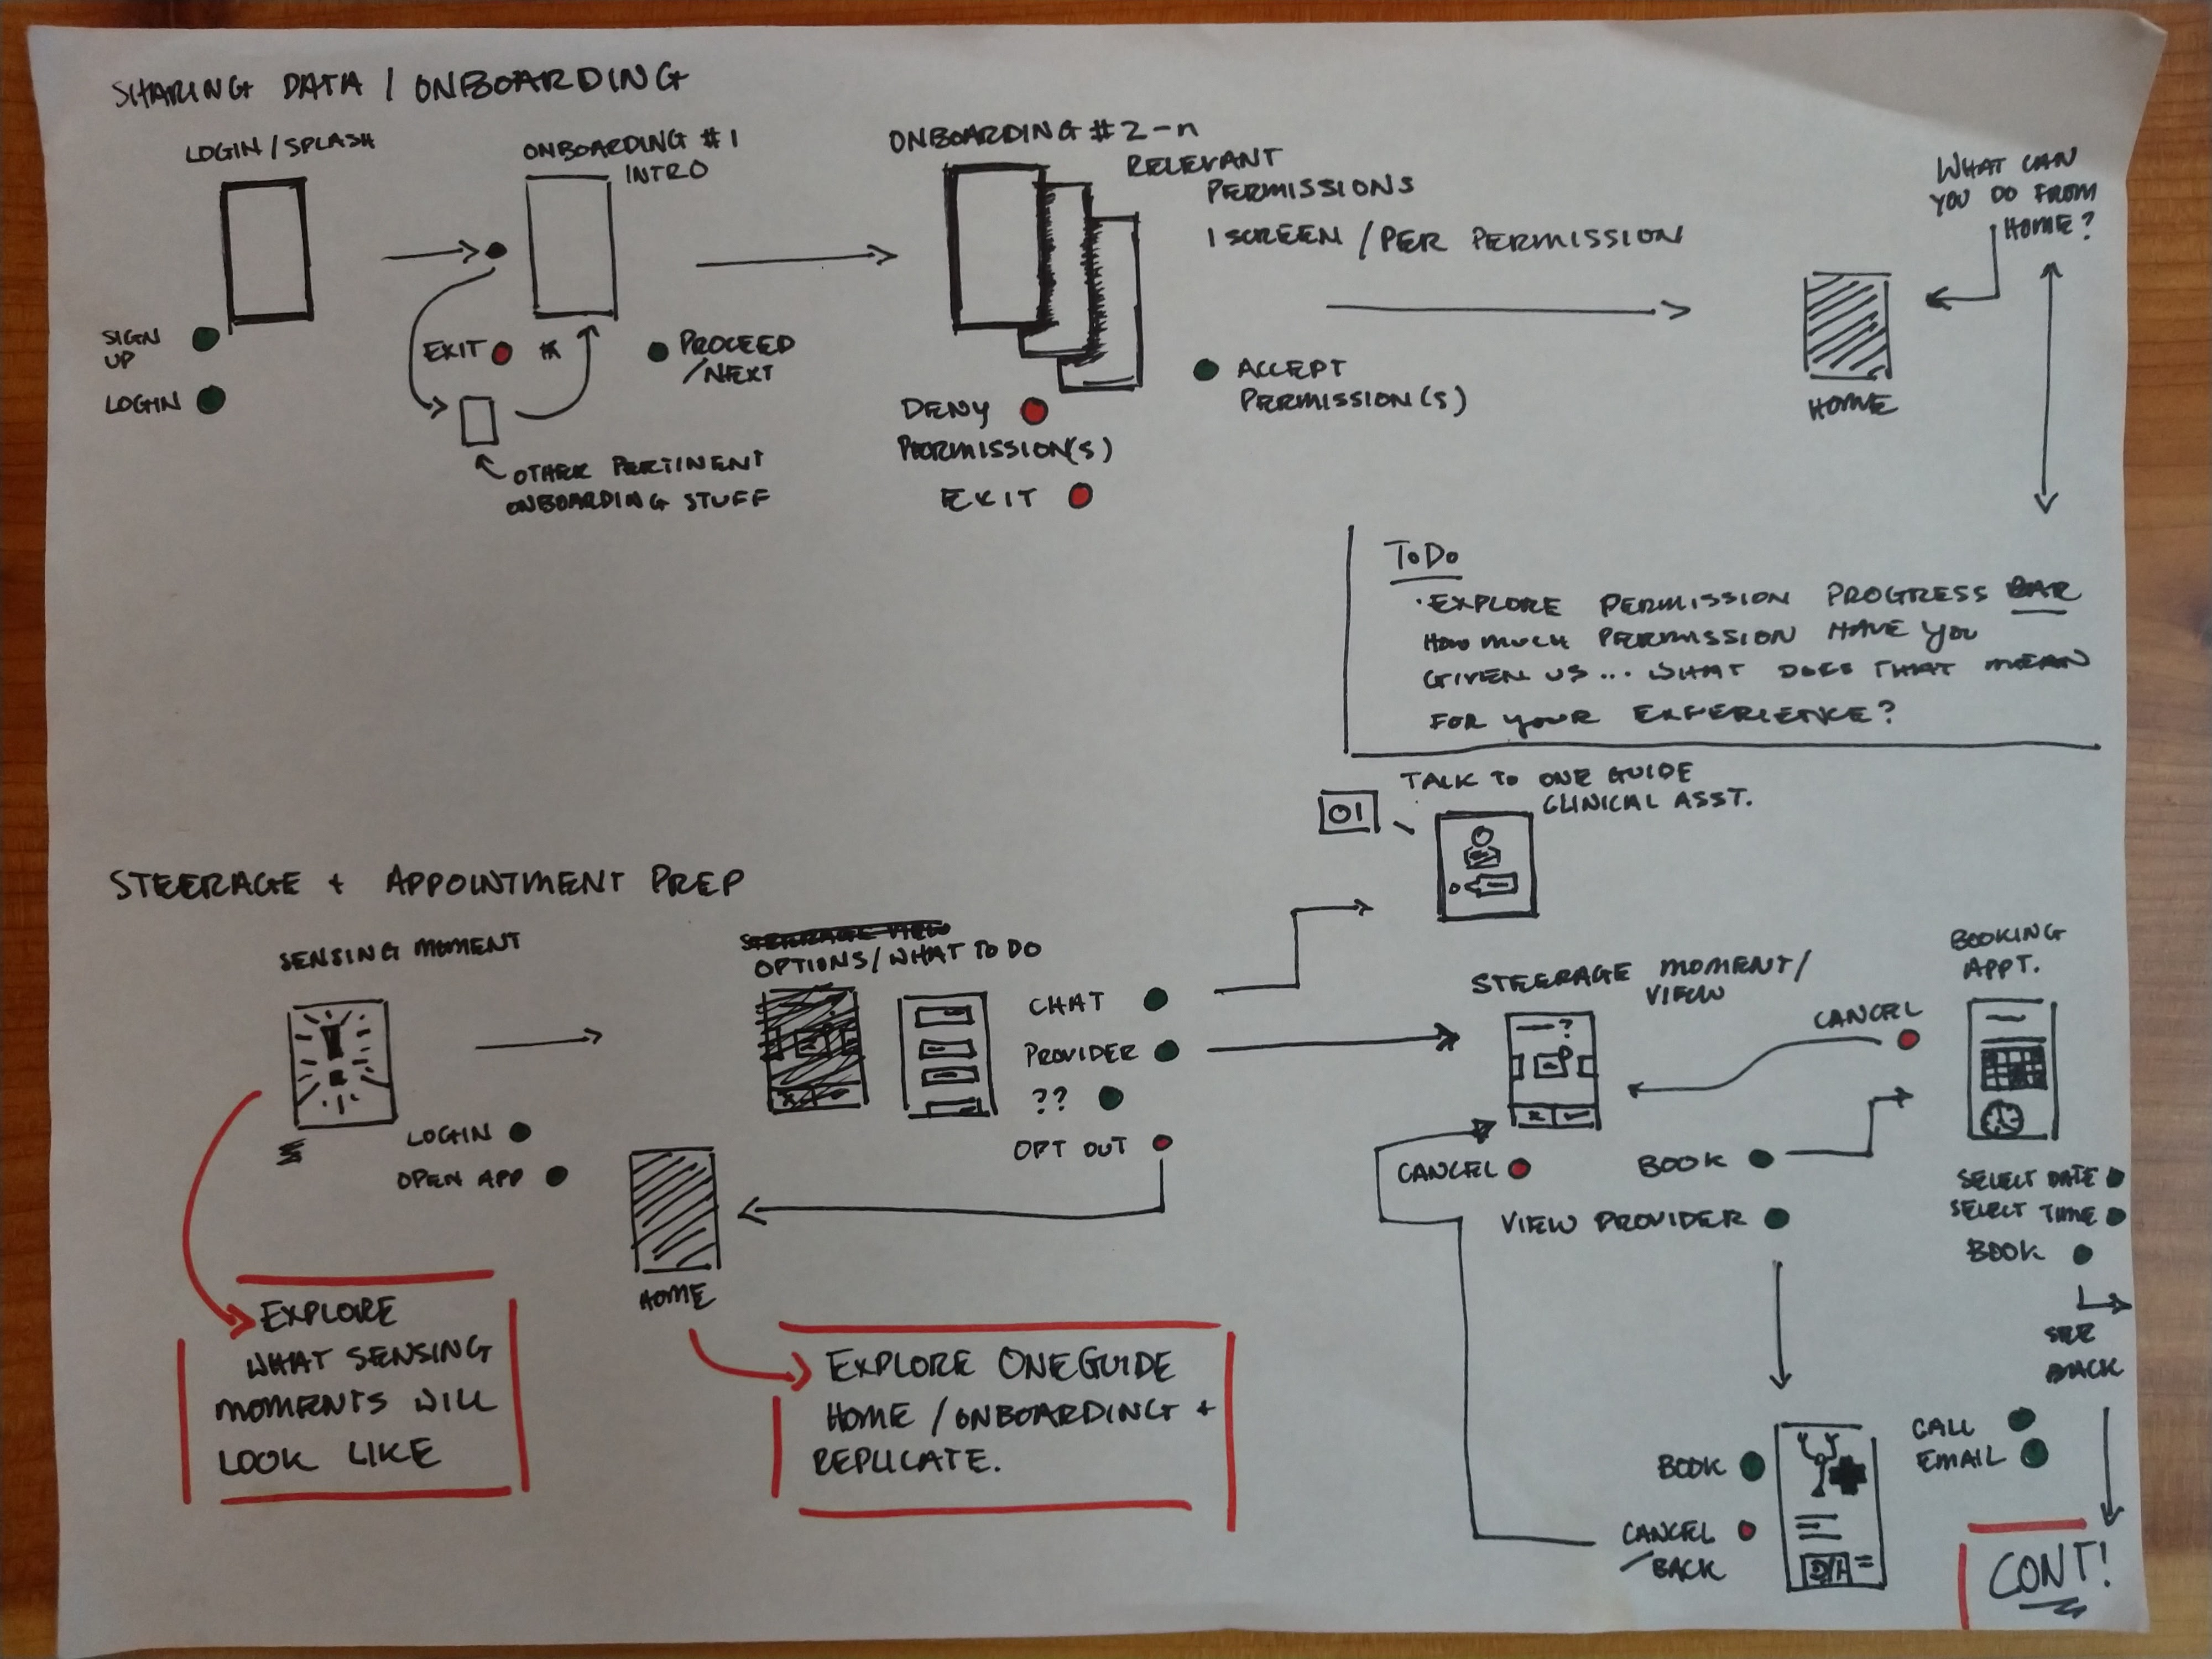 SHARING DATA / ONBOARDING
LOGIN/SPLASH
SIGN
UP
LOGIN
ONBOARDING #1
INTRO
EXIT
PROCEED
/NEXT
OTHER PERTINENT
ONBOARDING STUFF
ONBOARDING #2-n
RELEVANT
PERMISSIONS
1 SCREEN / PER PERMISSION
DENY
PERMISSION(S)
EXIT
ACCEPT
PERMISSION(S)
WHAT CAN
YOU DO FROM
HOME?
HOME
ToDo
· EXPLORE PERMISSION PROGRESS BAR
HOW MUCH PERMISSION HAVE YOU
GIVEN US... WHAT DOES THAT MEAN
FOR YOUR EXPERIENCE?
STEERAGE + APPOINTMENT PREP
SENSING MOMENT
LOGIN
OPEN APP
EXPLORE
WHAT SENSING
MOMENTS WILL
LOOK LIKE
STEERAGE VIEW
OPTIONS/WHAT TO DO
CHAT
PROVIDER
??
OPT OUT
HOME
EXPLORE ONEGUIDE
HOME /ONBOARDING +
REPLICATE.
TALK TO ONE GUIDE
CLINICAL ASST.
STEERAGE MOMENT/
VIEW
?
CANCEL
BOOK
VIEW PROVIDER
CANCEL
BOOKING
APPT.
SELECT DATE
SELECT TIME
BOOK
SEE
BACK
BOOK
CANCEL
/BACK
CALL
EMAIL
CONT!